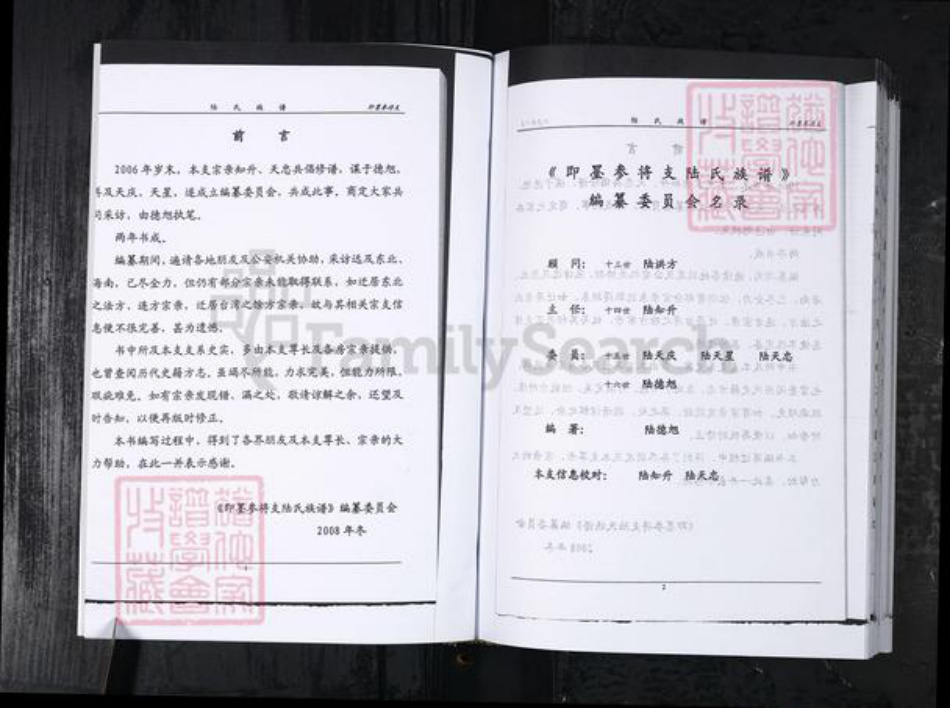 陆 氏 族 谱
即墨参将支
前 言
2006年岁末，本支宗亲知升、天忠共倡修谱，谋于德旭，
及天庆、天星，遂成立编纂委员会，共成此事，商定大家共
同采访，由德旭执笔。
两年书成。
编纂期间，通请各地朋友及公安机关协助，采访远及东北、
海南，已尽全力，但仍有部分宗亲未能取得联系，如迁居东北
之法方、连方宗亲，迁居台湾之馀方宗亲，故与其相关宗支信
息便不很完善，甚为遗憾。
书中所及本支支系史实，多由本支尊长及各房宗亲提供，
也曾查阅历代史籍方志，虽竭尽所能，力求完美，但能力所限，
瑕疵难免。如有宗亲发现错、漏之处，敬请谅解之余，还望及
时告知，以便再版时修正。
本书编写过程中，得到了各界朋友及本支尊长、宗亲的大
力帮助，在此一并表示感谢。
《即墨参将支陆氏族谱》编纂委员会
2008年冬
1
陆 氏 族 谱
即墨参将支
《即墨参将支陆氏族谱》
编纂委员会名录
顾 问： 十三世 陆洪方
主 任： 十四世 陆知升
委 员： 十五世 陆天庆 陆天星 陆天忠
十六世 陆德旭
编 著： 陆德旭
本支信息校对： 陆知升 陆天忠
2
FamilySearch